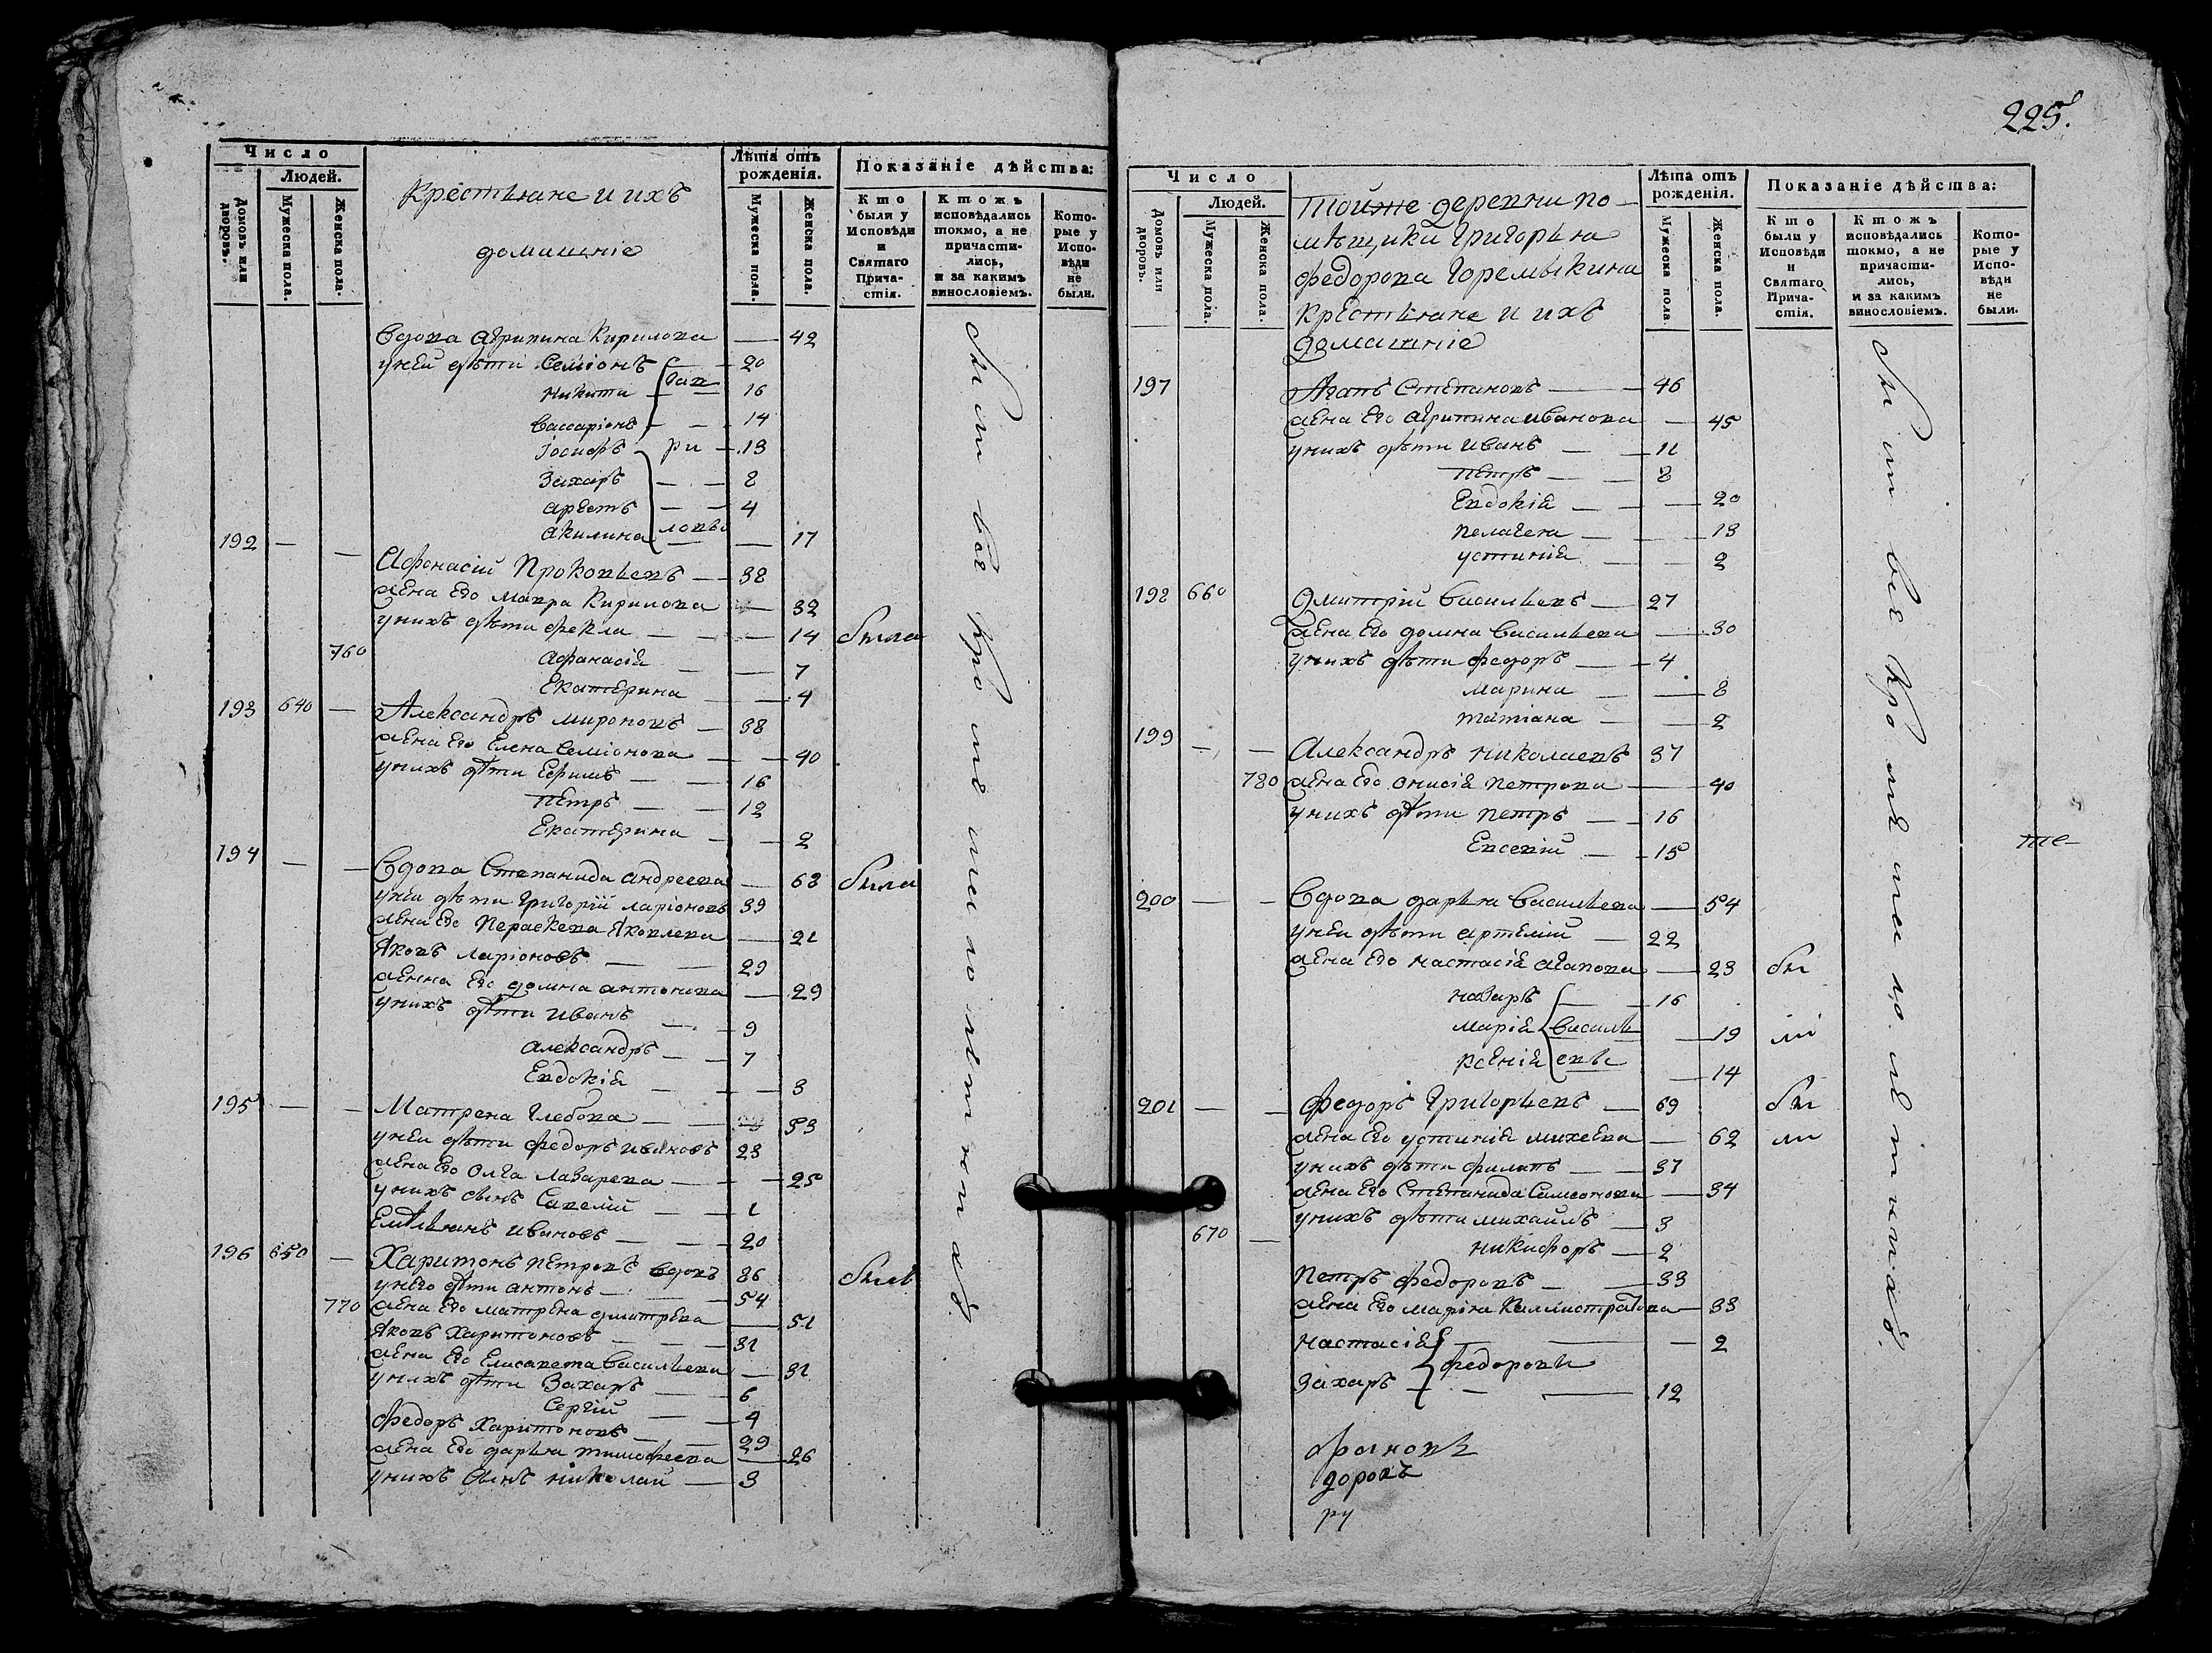 Число
Людей.
Домовъ или дворовъ.
Мужеска пола.
Женска пола.
Крестьяне и ихъ
домашніе
Лѣта отъ рожденія.
Мужеска пола.
Женска пола.
Показаніе дѣйства:
Кто были у Исповѣди и Святаго Прича-стія.
Ктожъ исповѣдались токмо, а не причасти-лись, и за какимъ винословіемъ.
Кото-рые у Испо-вѣди не были.
Вдова Агрипина Кирилова — 42
у ней дѣти Семіонъ — 20
Никита — 16
Вассаріонъ — 14
Іосифъ — 13
Захаръ — 8
Арестъ — 4
Акилина — 17
192 — — Афонасій Прокопьевъ — 38
жена Его Мавра Кирилова — 32
у нихъ дѣти Фекла — 14 была
760 Афанасія — 7
Екатерина — 4
193 640 — Александръ Мироновъ — 38
жена Его Елена Семіонова — 40
у нихъ дѣти Ефимъ — 16
Петръ — 12
Екатерина — 2
194 — — Вдова Степанида Андреева — 63 была
у ней дѣти Григорій Ларіоновъ 39
жена Его Параскева Яковлева — 21
Яковъ Ларіоновъ — 29
женна Его Домна Антонова — 29
у нихъ дѣти Иванъ — 9
Александръ — 7
Евдокія — 3
195 — — Матрена Глебова — 53
у ней дѣти Федоръ Ивановъ 23
жена Его Олга Лазарева — 25
у нихъ сынъ Савелій — 1
Емѣльянъ Ивановъ — 20
196 650 — Харитонъ Петровъ вдовъ 86 былъ
у него дѣти Антонъ — 54
770 жена Его Матрена Дмитрева — 51
Яковъ Харитоновъ — 31
жена Его Елисавета Васильева — 31
у нихъ дѣти Захаръ — 6
Сергій — 4
Федоръ Харитоновъ — 29
жена Его Дарья Тимофеева — 26
у нихъ Сынъ Николай — 3
225.
Число
Людей.
Домовъ или дворовъ.
Мужеска пола.
Женска пола.
Тойже деревни по-
мѣщика Григорья
Федорова Горемыкина
Крестьяне и ихъ
домашніе
Лѣта отъ рожденія.
Мужеска пола.
Женска пола.
Показаніе дѣйства:
Кто были у Исповѣди и Святаго Прича-стія.
Ктожъ исповѣдались токмо, а не причасти-лись, и за какимъ винословіемъ.
Кото-рые у Испо-вѣди не были.
197 Агапъ Степановъ — 46
жена Его Агрипина Иванова — 45
у нихъ дѣти Иванъ — 11
Петръ — 8
Евдокія — 20
Пелагея — 13
Устинія — 2
198 660 Дмитрій Васильевъ — 27
жена Его Домна Васильева — 30
у нихъ дѣти Федоръ — 4
Марина — 8
Татіана — 2
199 — — Александръ Николаевъ 37
780 жена Его Онисія Петрова — 40
у нихъ дѣти Петръ — 16
Евсевій — 15
200 — — Вдова Дарья Васильева — 54
у ней дѣти Артемій — 22
жена Его Настасія Агапова — 23 бы
Назаръ — 16
Марія Василь — 19 ли
Ксенія евы — 14
201 — — Федоръ Григорьевъ — 69 бы
жена Его Устинія Михеева — 62 ли
у нихъ дѣти Филатъ — 37
жена Его Степанида Самсонова — 34
у нихъ дѣти Михаилъ — 3
670 — Никифоръ — 2
Петръ Федоровъ — 33
жена Его Марина Каллистратова — 33
Настасія — 2
Федоровы
Захаръ — 12
ру